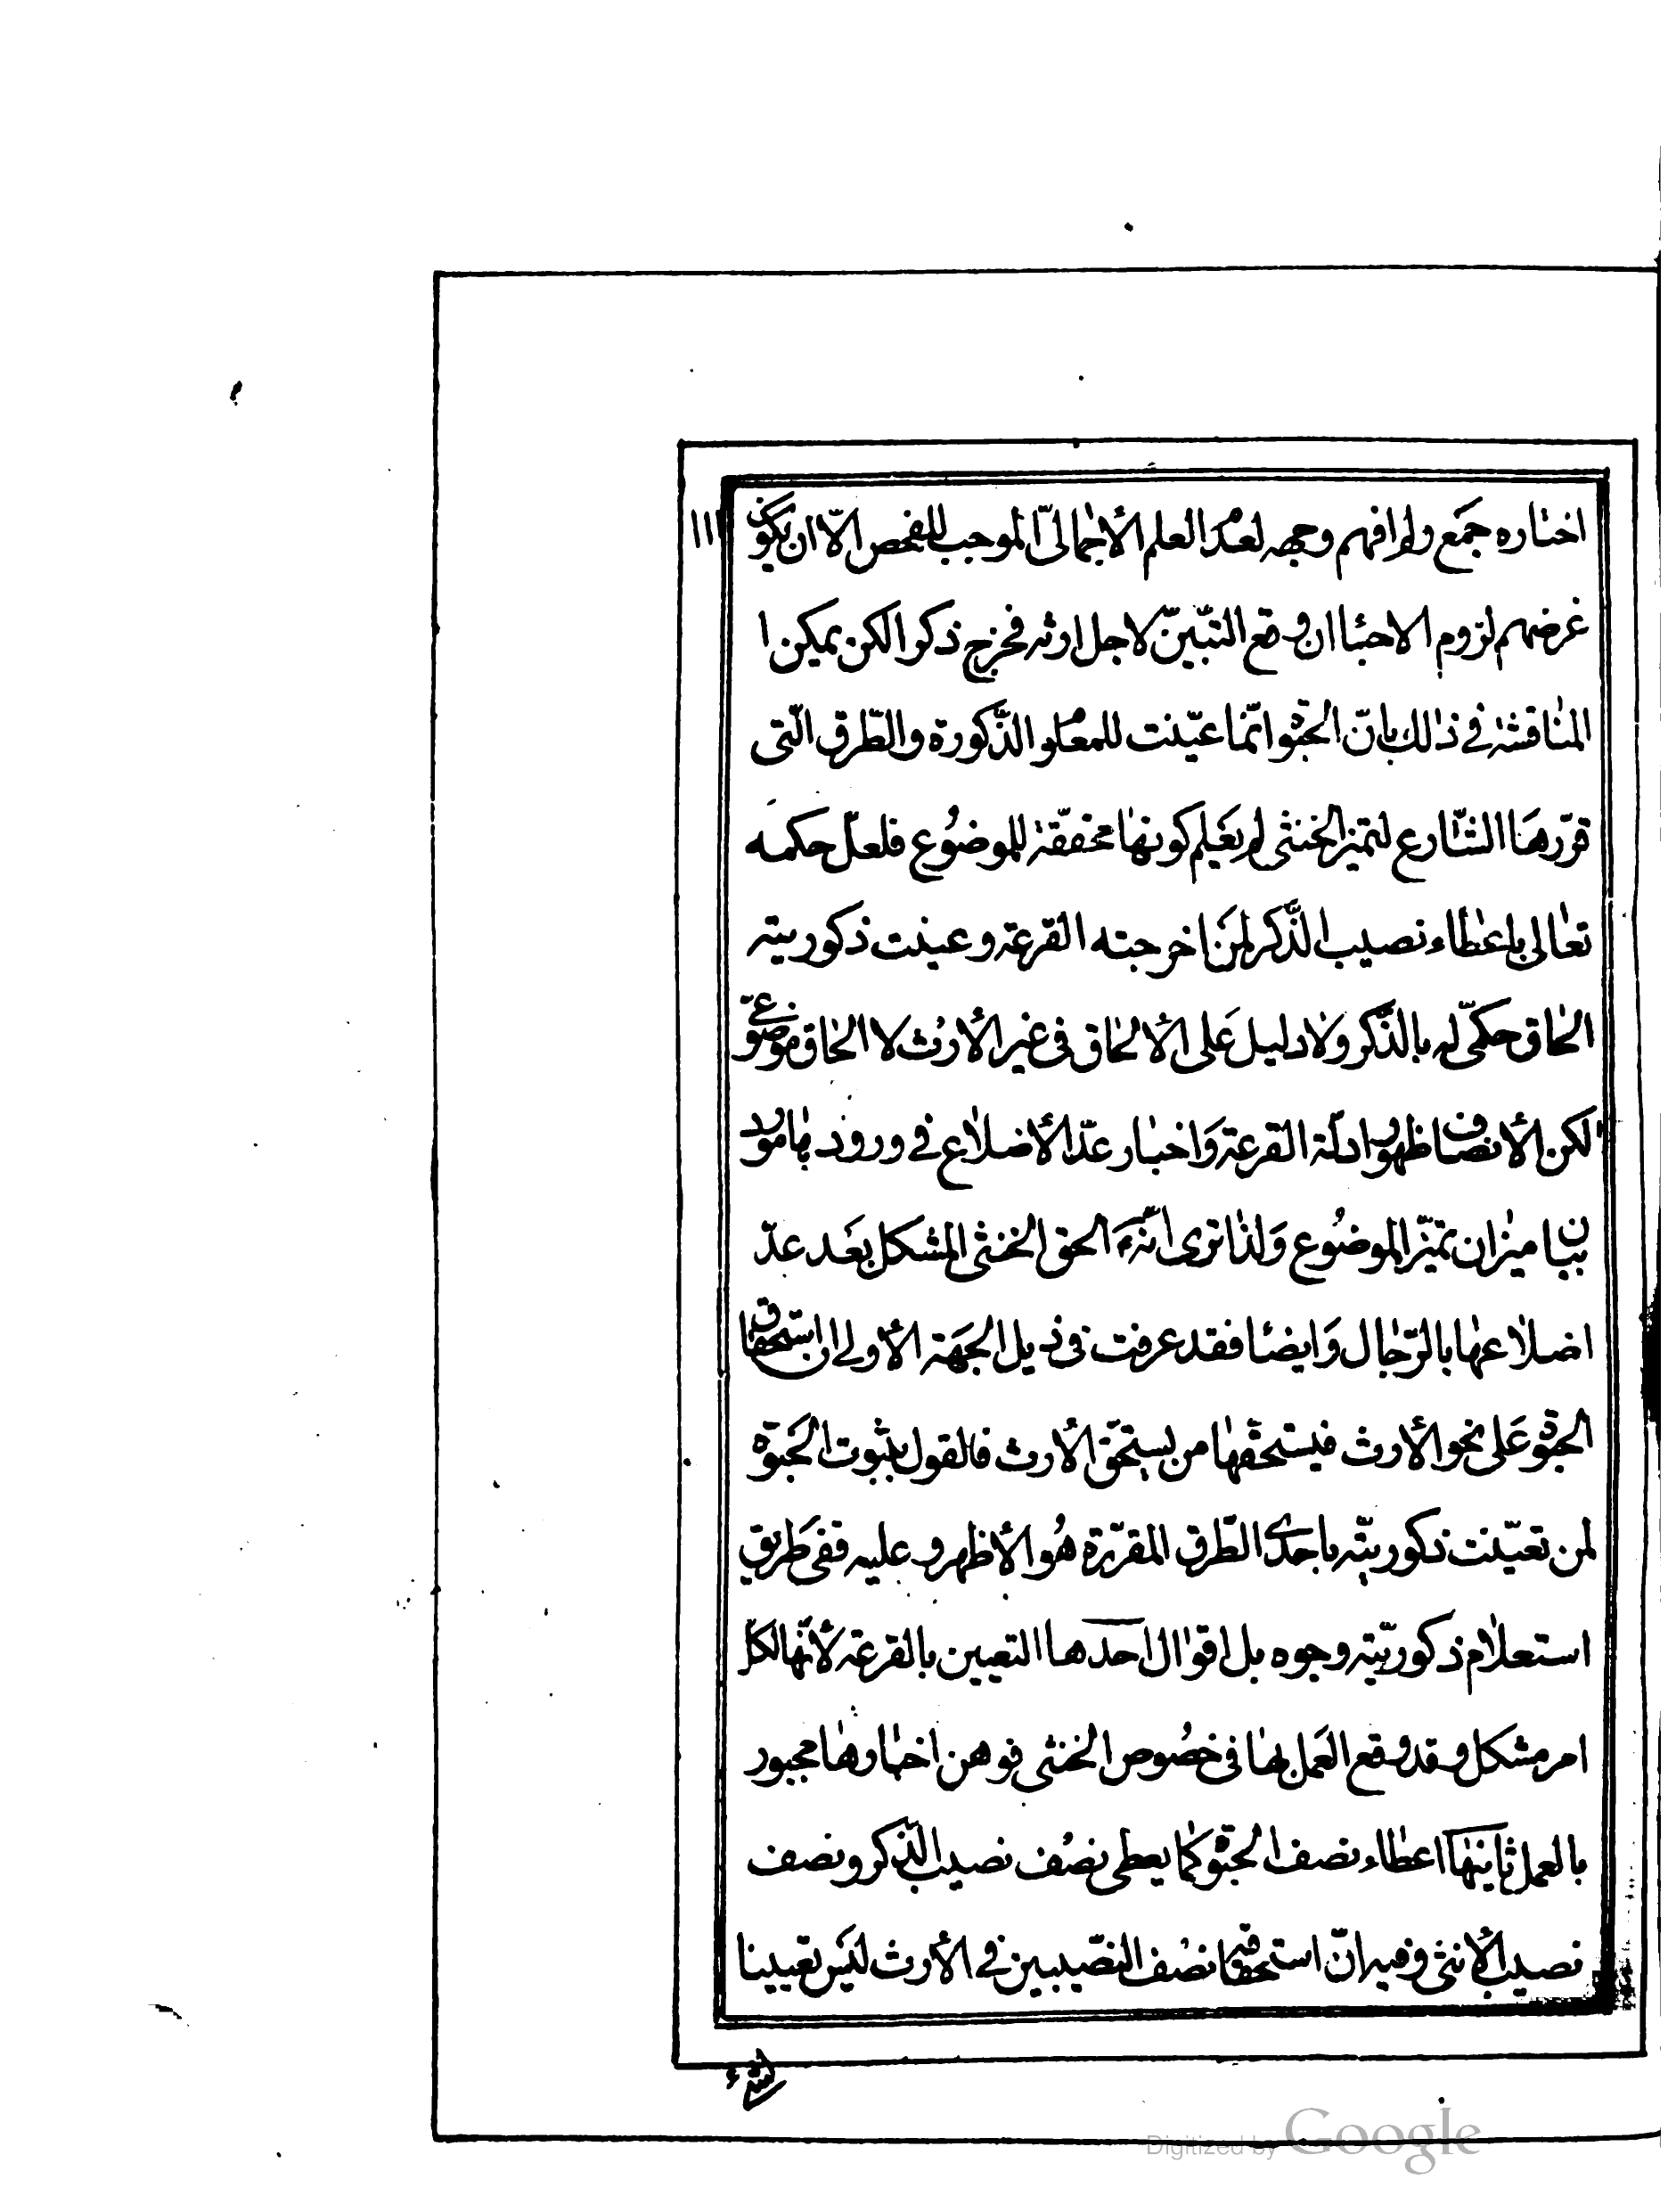 ١١١
اختاره جمع ولم افهم وجهه لعدم العلم الأجمالىّ الموجب للفحص الّا ان يكون
غرضهم لزوم الاحبا ان وقع التبّين لاجل ارثه فخرج ذكرا لكن يمكن ا
المناقشة فى ذلك بانّ الحبوة انّما عيّنت للمعلو الذّكورة والطّرق الّتى
قرّرها الشّارع لتميز الخنثى لم يعلم كونها محققّة للموضوع فلعلّ حكمه
تعالى باعطاء نصيب الذّكر لمن اخرجته القرعة وعينت ذكوريته
الحاق حكمىّ له بالذّكر ولا دليل على الألحاق فى غير الأرث لا الحاق موضوعىّ
لكن الأنصاف ظهور ادلّة القرعة واخبار عدّ الأضلاع فى ورودها مورد
بيان ميزان تميّز الموضوع ولذا ترى انّه الحق الخنثى المشكل بعد عدّ
اضلاعها بالرّجال وايضا فقد عرفت فى ذيل الجهة الأولى ان استحقاق
الحبوة على نحو الأرث فيستحقها من يستحقّ الأرث فالقول بثبوت الحبوة
لمن تعيّنت ذكوريتّه باحدى الطّرق المقرّرة هو الأظهر وعليه ففى طريق
استعلام ذكوريّته وجوه بل اقوال احدها التعيين بالقرعة لأنّها لكلّ
امر مشكل وقد وقع العمل بها فى خصوص الخنثى فوهن اخبارها مجبور
بالعمل ثانيها اعطاء نصف الحبوة كما يعطى نصف نصيب الذّكر ونصف
نصيب الأنثى وفيه انّ استحقاقها نصف النصّيبين فى الأرث ليس تعيينا
Digitized by Google